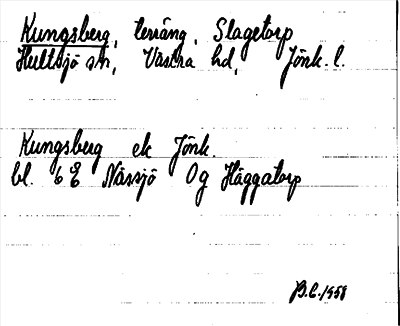 Kungsberg, terräng, Slagetorp
Hultsjö sn, Västra hd, Jönk. l.
Kungsberg ek Jönk.
bl. 6 E Nässjö Og Häggatorp
B.C. 1958